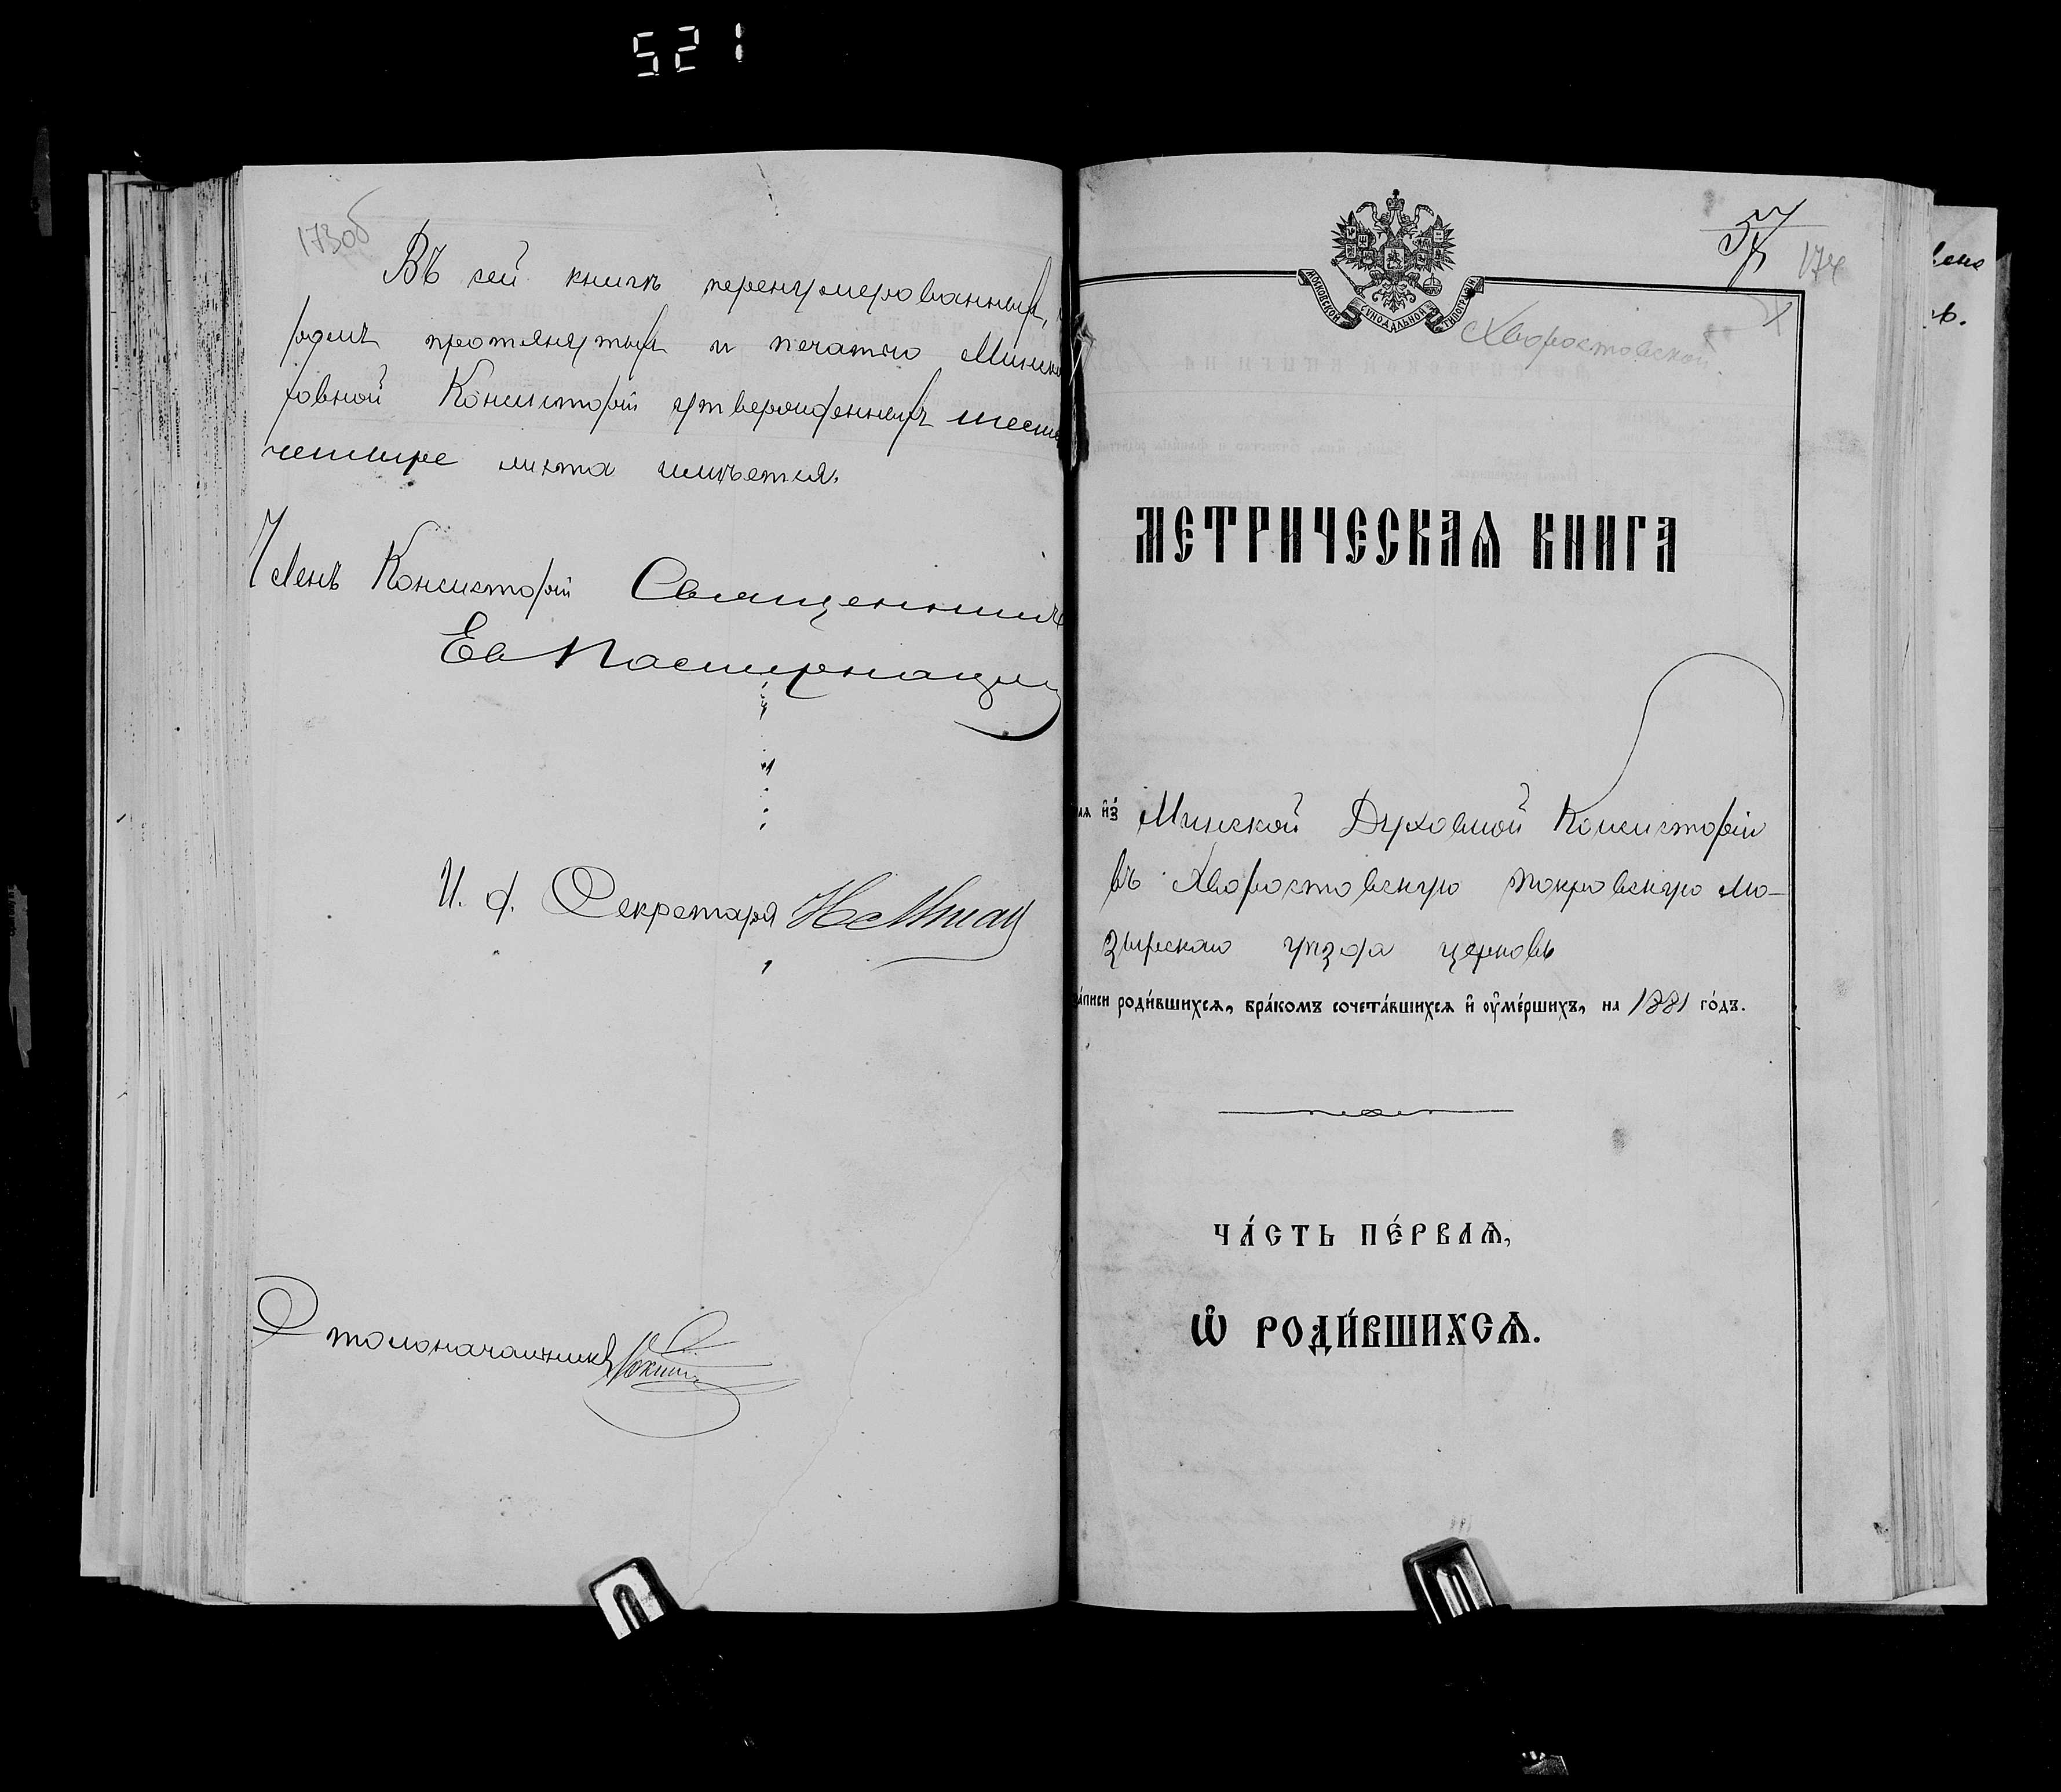 521
173об
Въ сей книгѣ перенумерованныхъ,
протянутыхъ и печатью Минско
ховной Консисторіи утвержденныхъ шест
четыре листа имѣется.
Членъ Консисторіи Священникъ
И. д. Секретаря
Столоначальникъ
174
МОСКОВСКОЙ СѴНОДАЛЬНОЙ ТИПОГРАФІИ
Хворостовской
МЕТРИЧЕСКАѦ КНИГА
и҆з̾ Минской Духовной Консисторіи
въ Хворостовскую Покровскую Мо-
зырскаго уѣзда церковь
а́писи роди́вшихсѧ, бра́комъ сочета́вшихсѧ и҆ ѹ҆ме́ршихъ, на 1881 го́дъ.
ЧА́СТЬ ПЕ́РВАѦ,
Ѽ РОДИ́ВШИХСѦ.